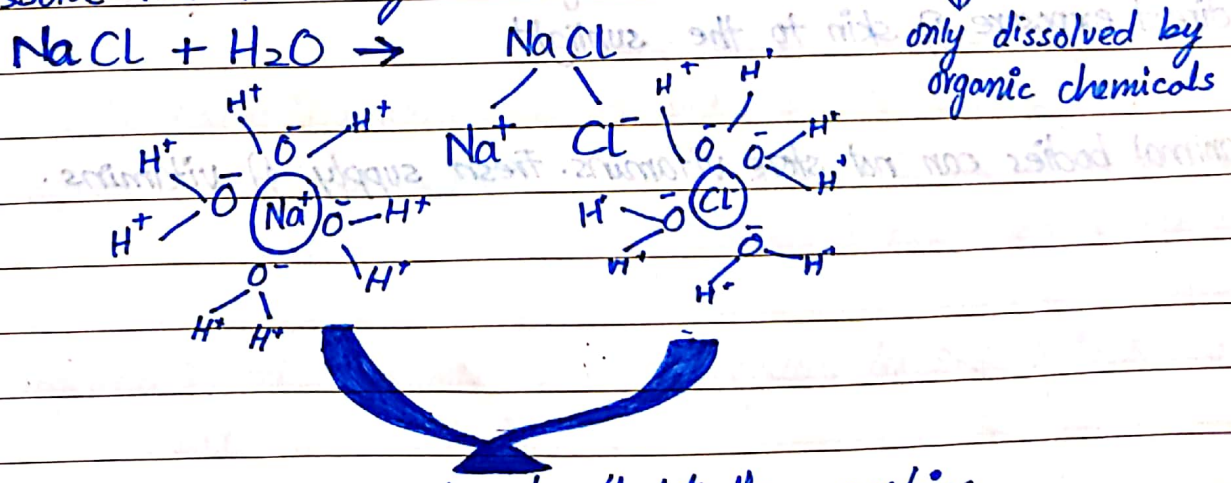 NaCl + H₂O → NaCl
only dissolved by
organic chemicals
Na⁺ Cl⁻
H⁺ H⁺ O⁻
H⁺ H⁺ O⁻
Na⁺
O⁻ H⁺ H⁺
O⁻ H⁺ H⁺
H⁺ H⁺ O⁻
O⁻ H⁺ H⁺
Cl⁻
H⁺ O⁻ H⁺
O⁻ H⁺ H⁺